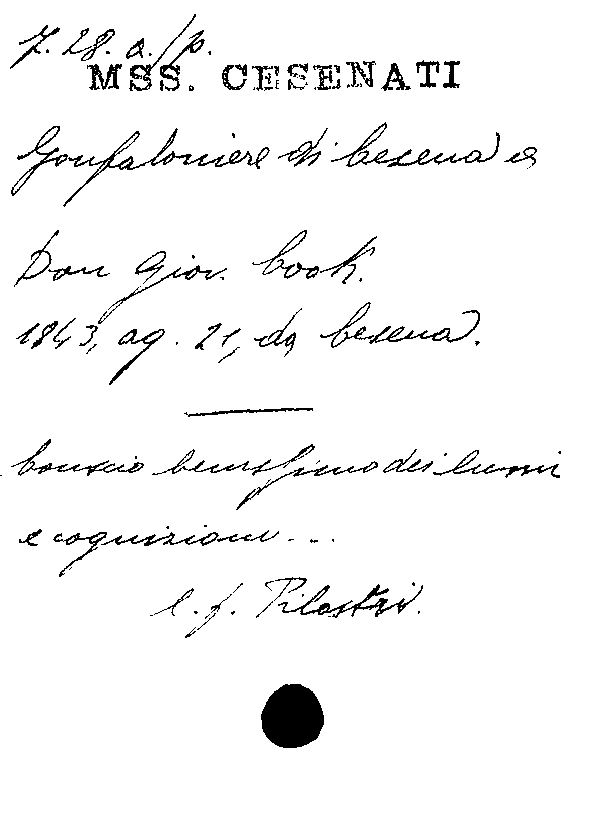 7. 28. a./p.
MSS. CESENATI
Gonfaloniere di Cesena a
Don Giov. Cook.
1843, ag. 21, da Cesena.
Conscio benissimo dei lumi
e cognizioni ...
C. f. Pilastri.